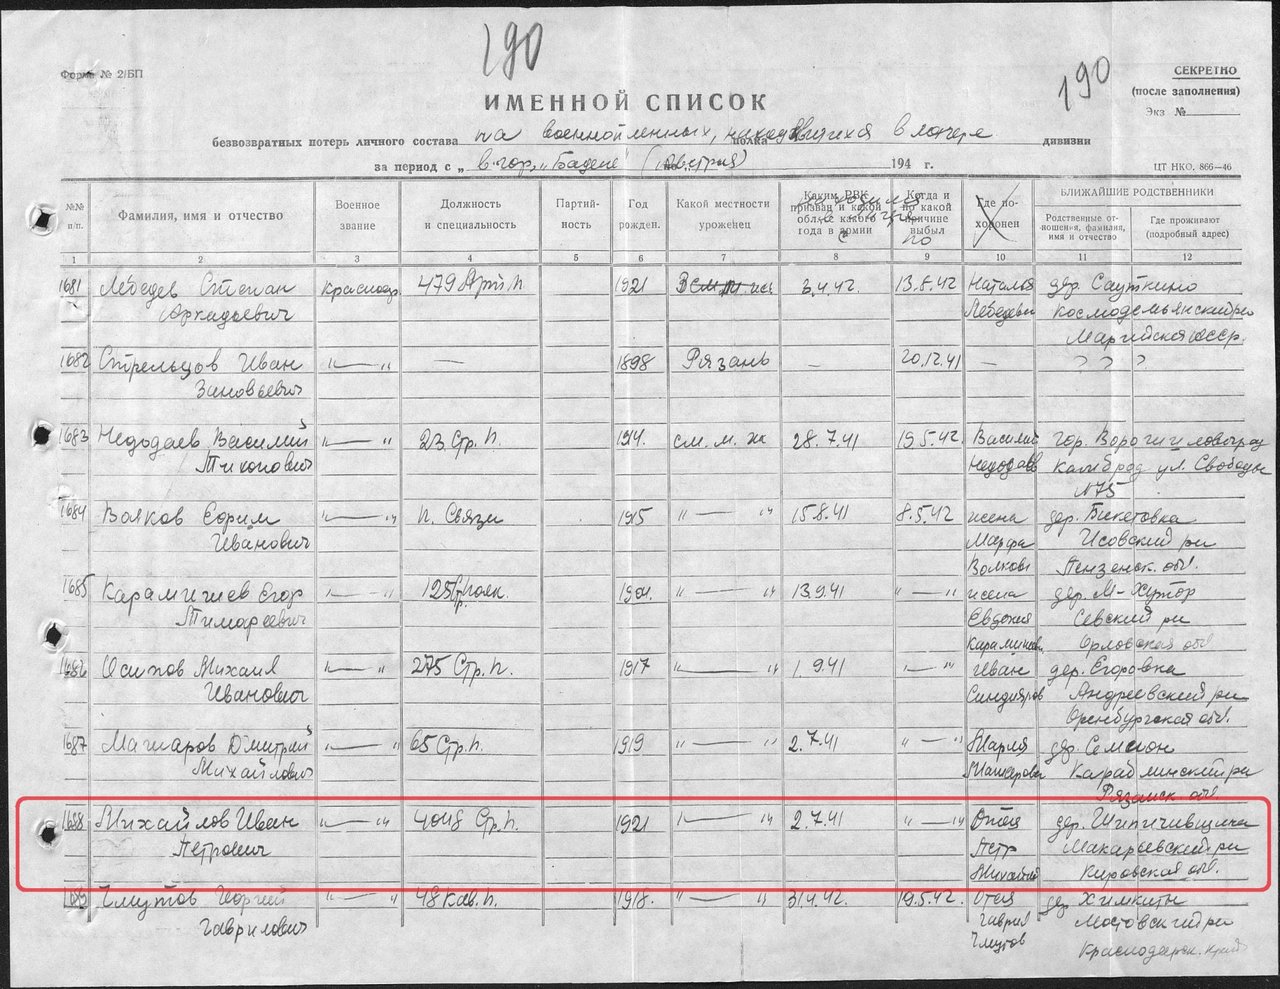 190
190
Форма № 2/БП
СЕКРЕТНО
(после заполнения)
Экз №
ИМЕННОЙ СПИСОК
безвозвратных потерь личного состава на военнопленных, находившихся в лагере дивизии
полка
за период с „ в гор. „Бадене (Австрия) 194 г.
ЦТ НКО. 866—46
№№ п/п.
Фамилия, имя и отчество
Военное звание
Должность и специальность
Партийность
Год рожден.
Какой местности уроженец
Каким РВК призван и какой обл., с какого года в армии
Когда и по какой причине выбыл
Где похоронен
БЛИЖАЙШИЕ РОДСТВЕННИКИ
Родственные отношения, фамилия, имя и отчество
Где проживают (подробный адрес)
с
по
1 2 3 4 5 6 7 8 9 10 11 12
1681 Лебедев Степан Красноар. 479 Арт. п 1921 3.4.42. 13.5.42 Наталья дер. Сауткино
Аркадьевич Лебедева Космодемьянский р-н
Марийская АССР.
1682 Стрельцов Иван —„— — 1898 Рязань — 20.12.41 — ? ? ?
Зановьевич
1683 Недодаев Василий —„— 23 Стр. п. 1914. см. м. ж 28.7.41 19.5.42. Василий гор. Ворошиловград
Тихонович Недодаев ул. Свободы
№75
1684 Волков Ефрим „—„ п. Связи 1915 „—„ 15.8.41 8.5.42 жена дер. Бикетовка
Иванович Марфа Исовский р-н
Волкова Пензенск. обл.
1685 Карамышев Егор „—„ 125 полк. 1904. „—„ 13.9.41 „—„ жена дер. М-Хутор
Тимареевич Евдокия Севский р-н
Карамышев. Орловская обл
1686 Осипов Михаил „—„ 275 Стр. п. 1917 „—„ 1.9.41 „—„ Иван дер. Егоровка
Иванович Андреевский р-н
Оренбургская обл.
1687 Машаров Дмитрий „—„ 65 Стр. п. 1919 „—„ 2.7.41 „—„ Мария дер. Семион
Михайлович Машарова Кораблинский р-н
Рязанск. обл.
1688 Михайлов Иван „—„ 4048 Стр. п. 1921 „—„ 2.7.41 „—„ Отец дер. Шипичивщина
Петрович Петр Макарьевский р-н
Михайлов Кировская обл.
1689 Чмутов Георгий „—„ 48 кав. п. 1918. „—„ 31.4.42. 19.5.42. Отец дер. Химкиты
Гаврилович Гаврил Мостовский р-н
Чмутов Краснодарск. край